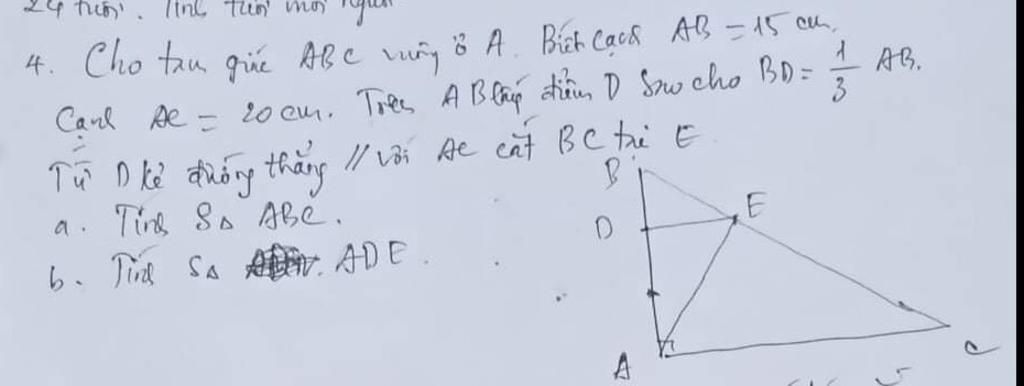 24 tuổi. Tính tuổi mỗi người
4. Cho tam giác ABC vuông ở A. Biết cạnh AB = 15 cm,
Cạnh AC = 20 cm. Trên AB lấy điểm D sao cho BD = 1/3 AB.
Từ D kẻ đường thẳng // với AC cắt BC tại E
a. Tính S∆ ABC.
b. Tính S∆ ADE.
B
D
E
A
C